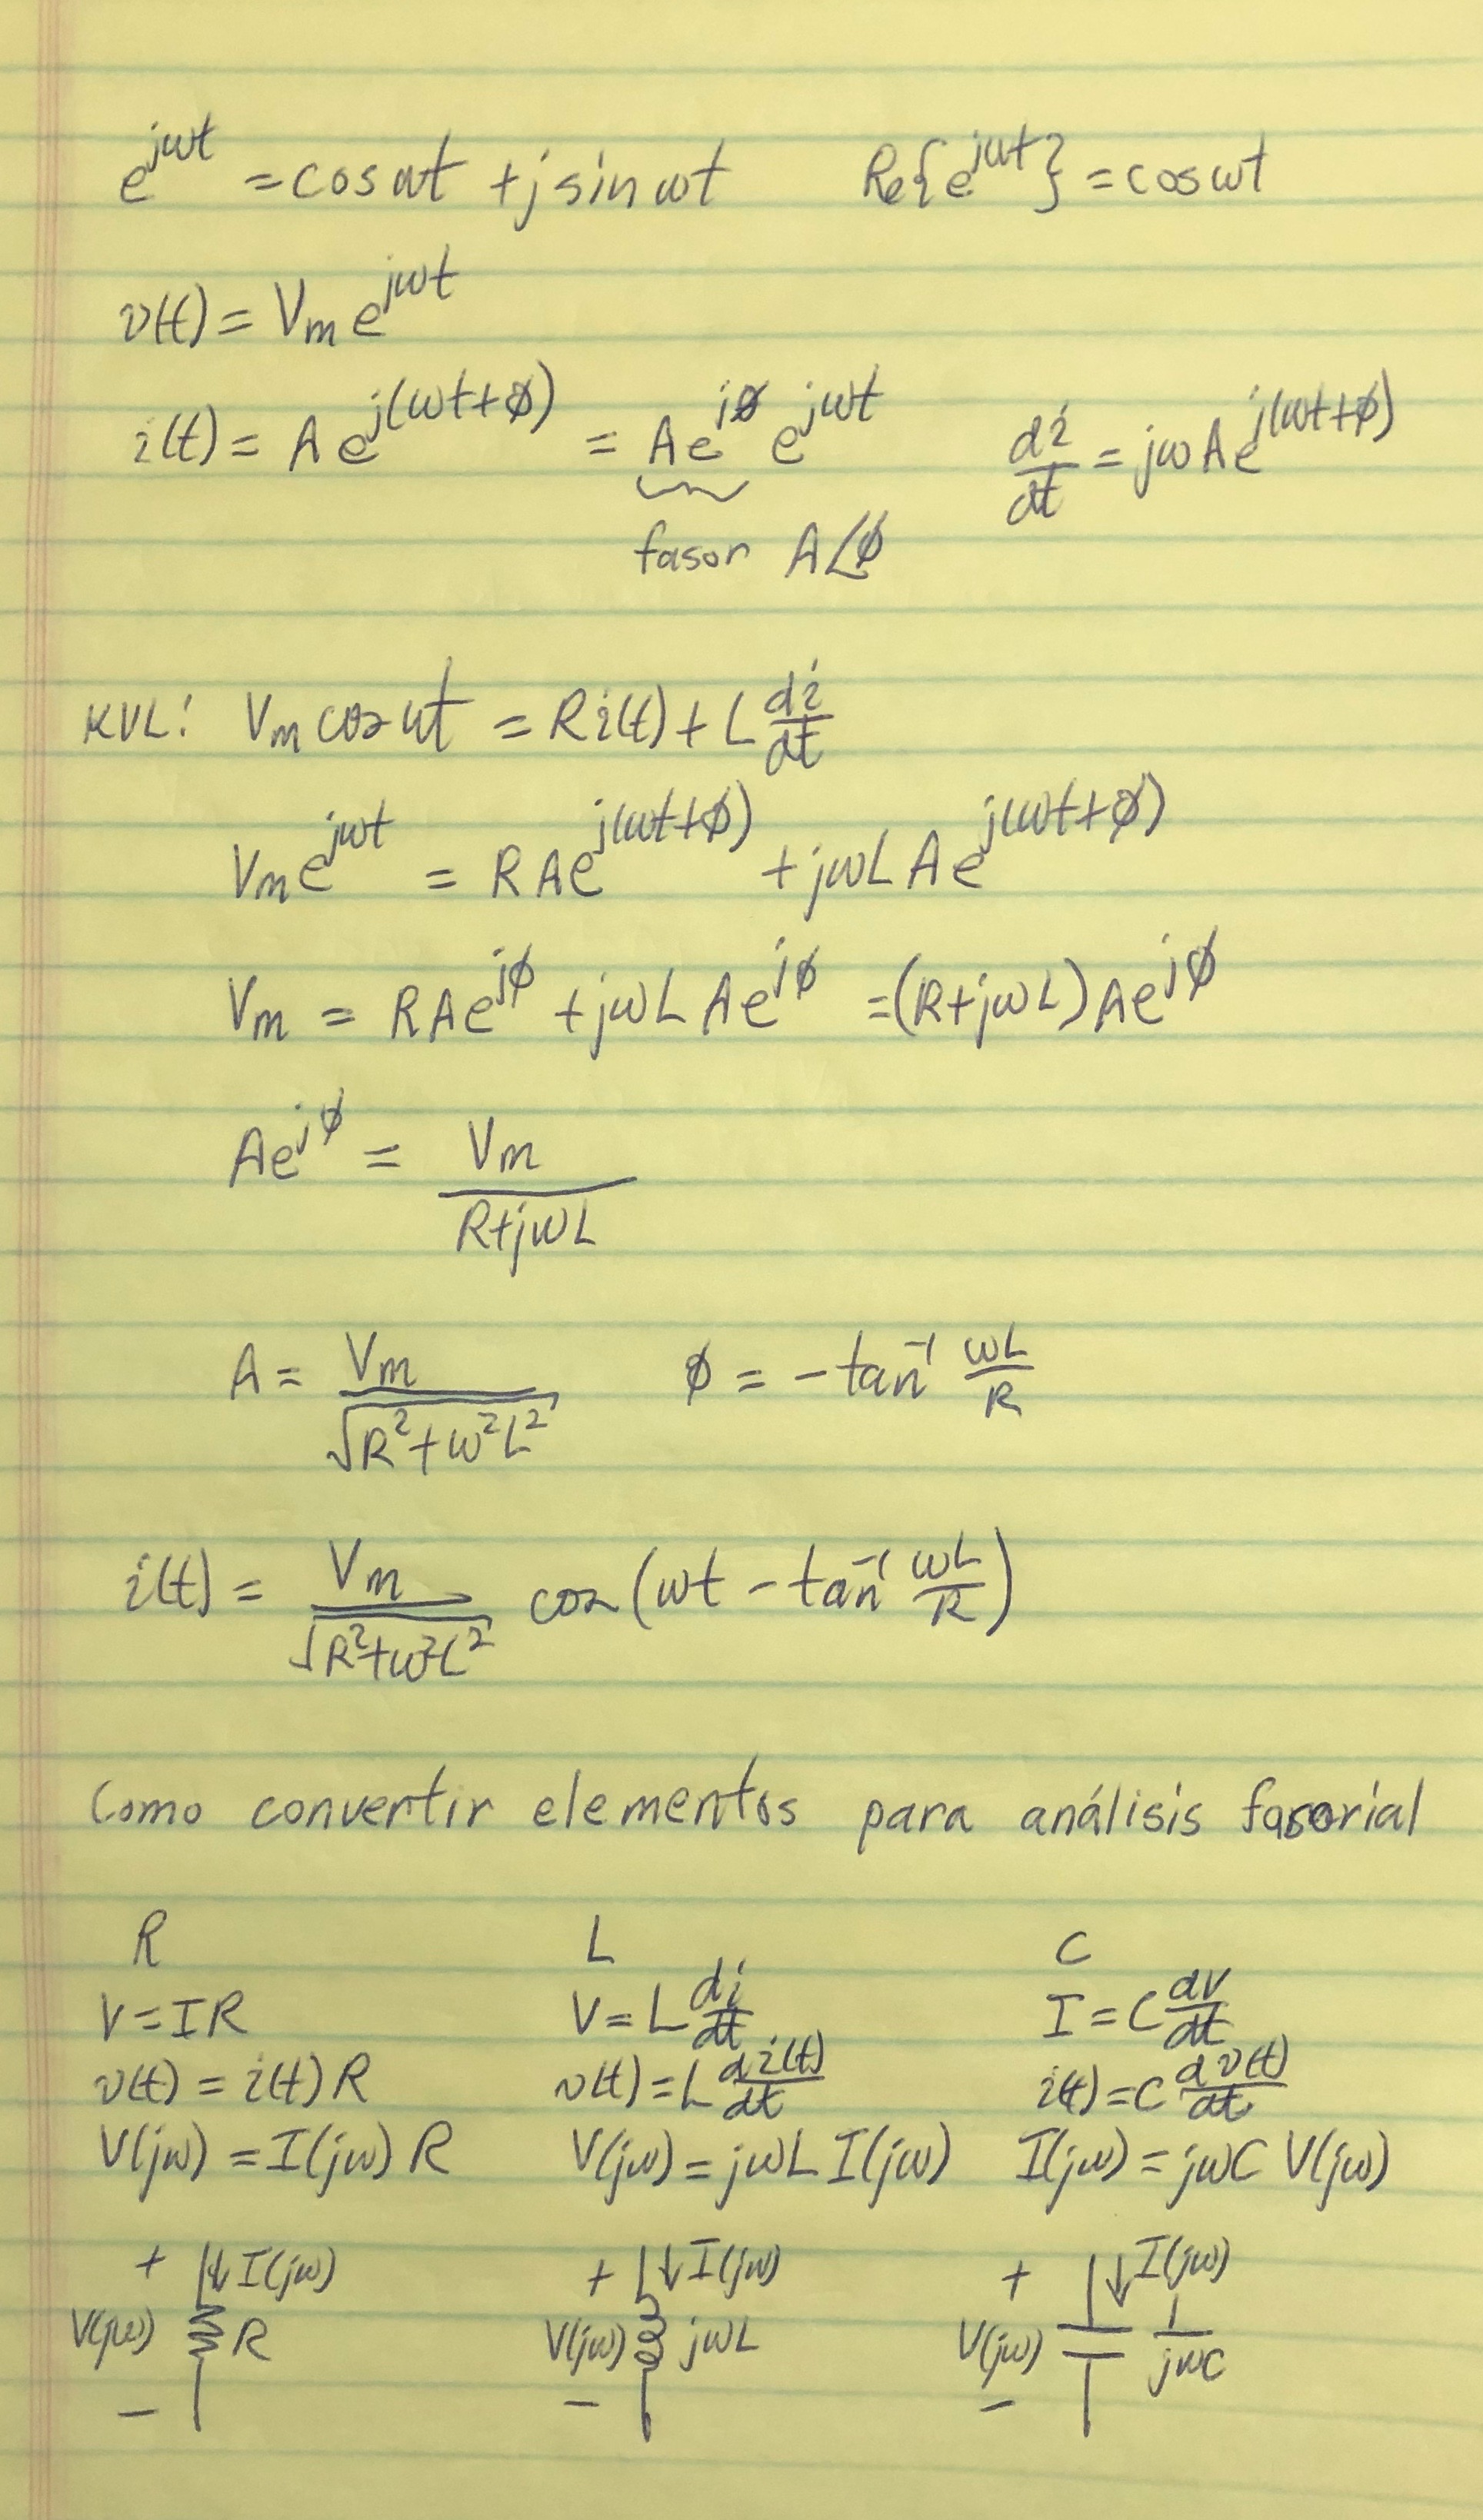 e^{jωt} = cos ωt + j sin ωt    Re{e^{jωt}} = cos ωt
v(t) = V_m e^{jωt}
i(t) = A e^{j(ωt+ϕ)} = A e^{jϕ} e^{jωt}    di/dt = jωA e^{j(ωt+ϕ)}
fasor A∠ϕ
KVL: V_m cos ωt = R i(t) + L di/dt
V_m e^{jωt} = R A e^{j(ωt+ϕ)} + jωL A e^{j(ωt+ϕ)}
V_m = R A e^{jϕ} + jωL A e^{jϕ} = (R+jωL) A e^{jϕ}
A e^{jϕ} = V_m / (R+jωL)
A = V_m / √(R²+ω²L²)    ϕ = -tan⁻¹ ωL/R
i(t) = V_m / √(R²+ω²L²) cos(ωt - tan⁻¹ ωL/R)
Como convertir elementos para análisis fasorial
R    L    C
V = IR    V = L di/dt    I = C dv/dt
v(t) = i(t) R    v(t) = L di(t)/dt    i(t) = C dv(t)/dt
V(jω) = I(jω) R    V(jω) = jωL I(jω)    I(jω) = jωC V(jω)
+ ↓ I(jω)    + ↓ I(jω)    + ↓ I(jω)
V(jω) R    V(jω) jωL    V(jω) 1/jωC
-    -    -